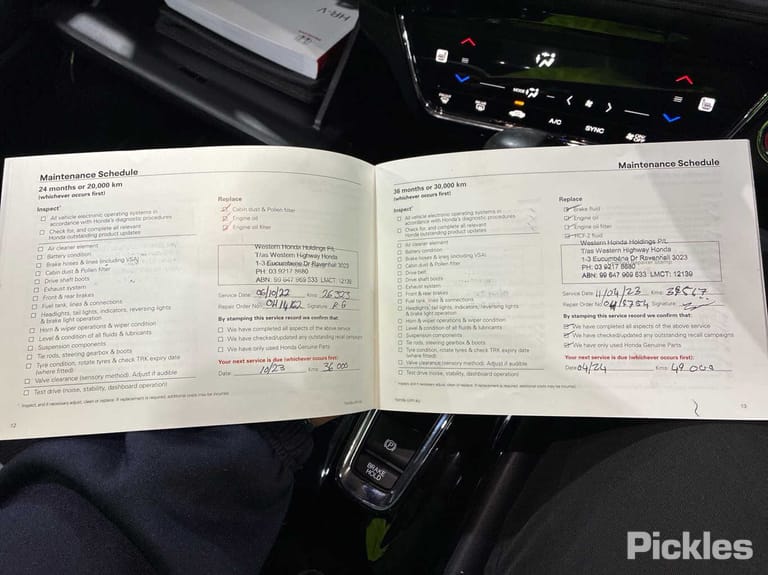 HR-V
MODE
A/C
SYNC
ON/OFF
Maintenance Schedule
24 months or 20,000 km
(whichever occurs first)
Inspect*
All vehicle electronic operating systems in
accordance with Honda's diagnostic procedures
Check for, and complete all relevant
Honda outstanding product updates
Air cleaner element
Battery condition
Brake hoses & lines (including VSA)
Cabin dust & Pollen filter
Drive shaft boots
Exhaust system
Front & rear brakes
Fuel tank, lines & connections
Headlights, tail lights, indicators, reversing lights
& brake light operation
Horn & wiper operations & wiper condition
Level & condition of all fluids & lubricants
Suspension components
Tie rods, steering gearbox & boots
Tyre condition, rotate tyres & check TRK expiry date
(where fitted)
Valve clearance (sensory method). Adjust if audible
Test drive (noise, stability, dashboard operation)
* Inspect, and if necessary adjust, clean or replace. If replacement is required, additional costs may be incurred.
12
Replace
Cabin dust & Pollen filter
Engine oil
Engine oil filter
Western Honda Holdings P/L
T/as Western Highway Honda
1-3 Eucumbene Dr Ravenhall 3023
PH: 03 9217 8680
ABN: 99 647 969 533 LMCT: 12139
Service Date: 06/10/22 Kms: 26323
Repair Order No: Signature:
By stamping this service record we confirm that:
We have completed all aspects of the above service
We have checked/updated any outstanding recall campaigns
We have only used Honda Genuine Parts
Your next service is due (whichever occurs first):
Date: 10/23 Kms: 36 000
honda.com.au
Maintenance Schedule
36 months or 30,000 km
(whichever occurs first)
Inspect*
All vehicle electronic operating systems in
accordance with Honda's diagnostic procedures
Check for, and complete all relevant
Honda outstanding product updates
Air cleaner element
Battery condition
Brake hoses & lines (including VSA)
Cabin dust & Pollen filter
Drive belt
Drive shaft boots
Exhaust system
Front & rear brakes
Fuel tank, lines & connections
Headlights, tail lights, indicators, reversing lights
& brake light operation
Horn & wiper operations & wiper condition
Level & condition of all fluids & lubricants
Suspension components
Tie rods, steering gearbox & boots
Tyre condition, rotate tyres & check TRK expiry date
(where fitted)
Valve clearance (sensory method). Adjust if audible
Test drive (noise, stability, dashboard operation)
* Inspect, and if necessary adjust, clean or replace. If replacement is required, additional costs may be incurred.
honda.com.au
Replace
Brake fluid
Engine oil
Engine oil filter
HCF-2 fluid
Western Honda Holdings P/L
T/as Western Highway Honda
1-3 Eucumbene Dr Ravenhall 3023
PH: 03 9217 8680
ABN: 99 647 969 533 LMCT: 12139
Service Date: 11/04/23 Kms: 38567
Repair Order No: Signature:
By stamping this service record we confirm that:
We have completed all aspects of the above service
We have checked/updated any outstanding recall campaigns
We have only used Honda Genuine Parts
Your next service is due (whichever occurs first):
Date: 04/24 Kms: 49 000
13
BRAKE
HOLD
Pickles